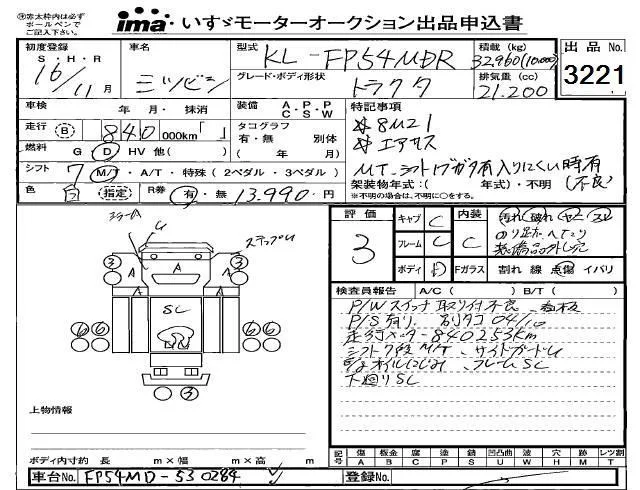 ㊟赤太枠内は必ず
ボールペンで
ご記入下さい。
ima いすゞモーターオークション出品申込書
初度登録 車名 型式 KL-FP54MDR 積載 (kg) 出品 No.
S・H・R 32,960(10,000)
16/11月 ミツビシ グレード・ボディ形状 トラクタ 排気量 (cc) 3221
21.200
車検 年 月・ 抹消 装備 A.P.P C S W 特記事項
走行 Ⓑ 840 000km「 」 タコグラフ *8M21
有・無 別体 *エアサス
燃料 G D HV 他( ) ( 年 月) MT シフト 有入りにくい時有
シフト 7 M/T・A/T・特殊(2ペダル・3ペダル) (不良)
架装物年式:( 年式)・不明
色 白 指定 R券 有・無 13,990円 ※不明の場合は、不明に○をする。
評価 3
キャブ C 内装 C 汚れ 破れ ヤニ スレ
フレーム C のり跡
ボディ D Fガラス 割れ 線 点傷 イバリ
ステップU
A A A A
U
SC
3 3
6 6 6 6
3
検査員報告 A/C( ) B/T( )
P/Wスイッチ取り付不良、看板
P/S有り、
走行メーター840253km
シフト7段M/T、サイドガードU
オイルにじみ、フレームSC
下廻りSC
上物情報
ボディ内寸約 長 m×幅 m×高 m
記号 傷 板金 腐 塗 錆 凹凸曲 波 穴 跡 レツ割
A B C P S U W H M T
車台No. FP54MD-530284 登録No.